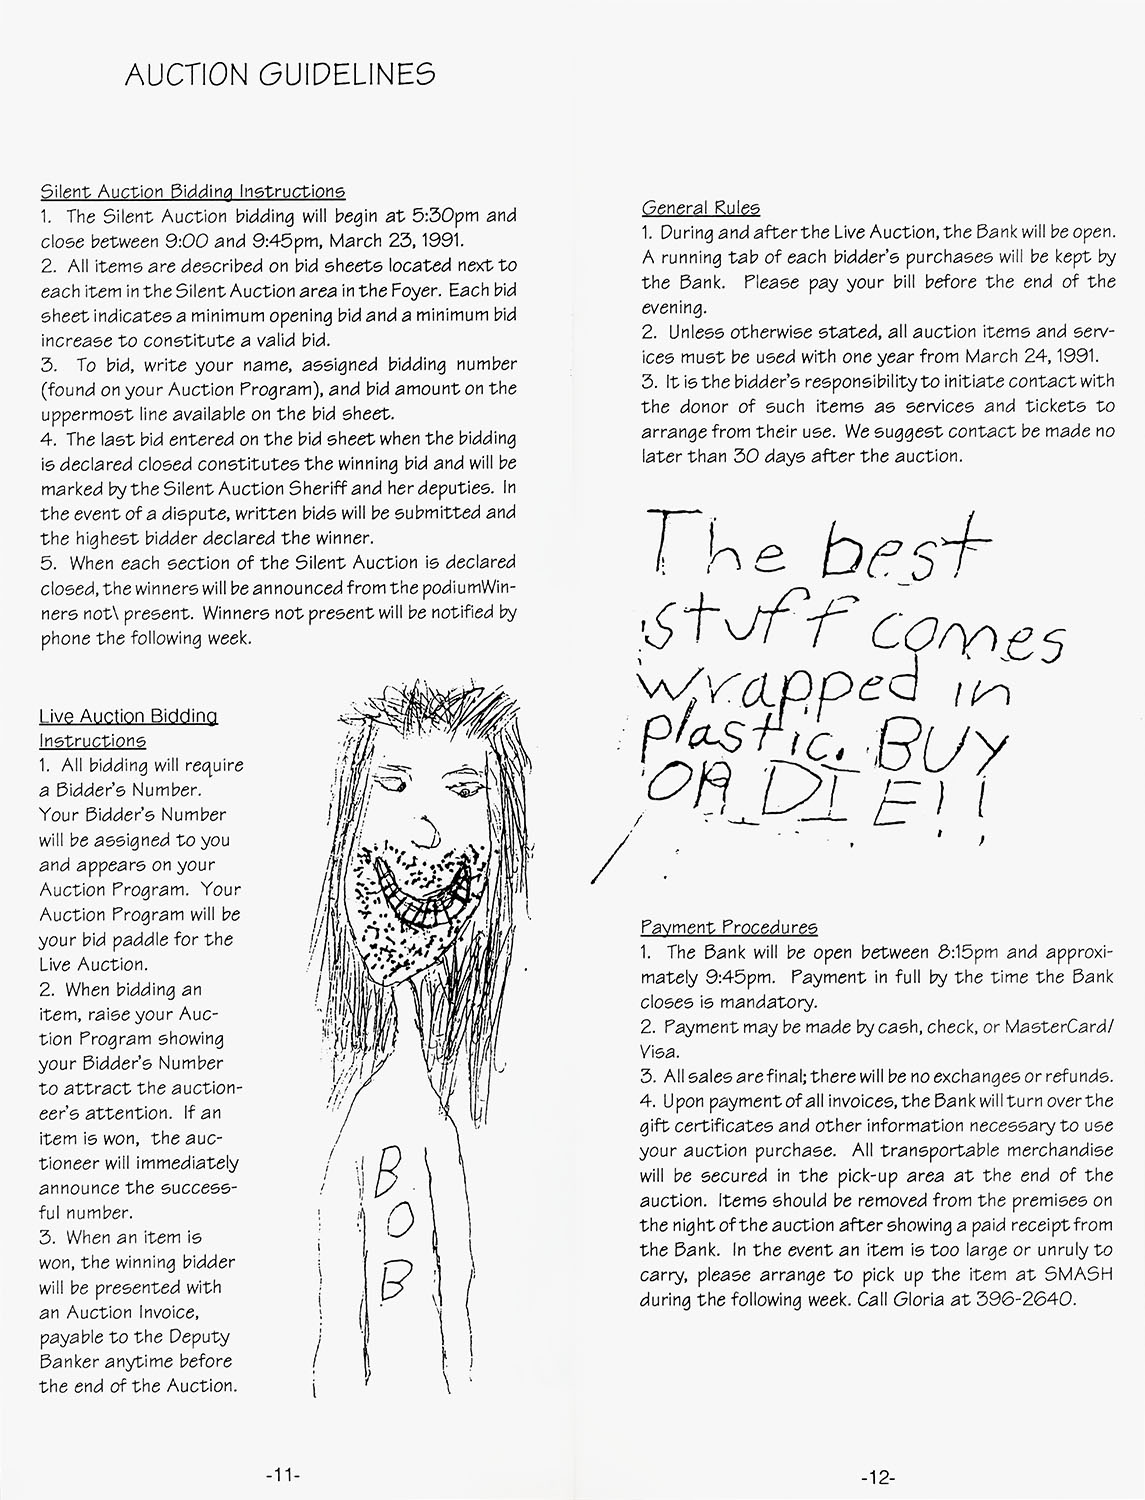 AUCTION GUIDELINES
Silent Auction Bidding Instructions
1. The Silent Auction bidding will begin at 5:30pm and
close between 9:00 and 9:45pm, March 23, 1991.
2. All items are described on bid sheets located next to
each item in the Silent Auction area in the Foyer. Each bid
sheet indicates a minimum opening bid and a minimum bid
increase to constitute a valid bid.
3. To bid, write your name, assigned bidding number
(found on your Auction Program), and bid amount on the
uppermost line available on the bid sheet.
4. The last bid entered on the bid sheet when the bidding
is declared closed constitutes the winning bid and will be
marked by the Silent Auction Sheriff and her deputies. In
the event of a dispute, written bids will be submitted and
the highest bidder declared the winner.
5. When each section of the Silent Auction is declared
closed, the winners will be announced from the podiumWin-
ners not\ present. Winners not present will be notified by
phone the following week.
Live Auction Bidding
Instructions
1. All bidding will require
a Bidder's Number.
Your Bidder's Number
will be assigned to you
and appears on your
Auction Program. Your
Auction Program will be
your bid paddle for the
Live Auction.
2. When bidding an
item, raise your Auc-
tion Program showing
your Bidder's Number
to attract the auction-
eer's attention. If an
item is won, the auc-
tioneer will immediately
announce the success-
ful number.
3. When an item is
won, the winning bidder
will be presented with
an Auction Invoice,
payable to the Deputy
Banker anytime before
the end of the Auction.
B
O
B
-11-
General Rules
1. During and after the Live Auction, the Bank will be open.
A running tab of each bidder's purchases will be kept by
the Bank. Please pay your bill before the end of the
evening.
2. Unless otherwise stated, all auction items and serv-
ices must be used with one year from March 24, 1991.
3. It is the bidder's responsibility to initiate contact with
the donor of such items as services and tickets to
arrange from their use. We suggest contact be made no
later than 30 days after the auction.
The best
stuff comes
wrapped in
plastic. BUY
OR DIE!!
Payment Procedures
1. The Bank will be open between 8:15pm and approxi-
mately 9:45pm. Payment in full by the time the Bank
closes is mandatory.
2. Payment may be made by cash, check, or MasterCard/
Visa.
3. All sales are final; there will be no exchanges or refunds.
4. Upon payment of all invoices, the Bank will turn over the
gift certificates and other information necessary to use
your auction purchase. All transportable merchandise
will be secured in the pick-up area at the end of the
auction. Items should be removed from the premises on
the night of the auction after showing a paid receipt from
the Bank. In the event an item is too large or unruly to
carry, please arrange to pick up the item at SMASH
during the following week. Call Gloria at 396-2640.
-12-